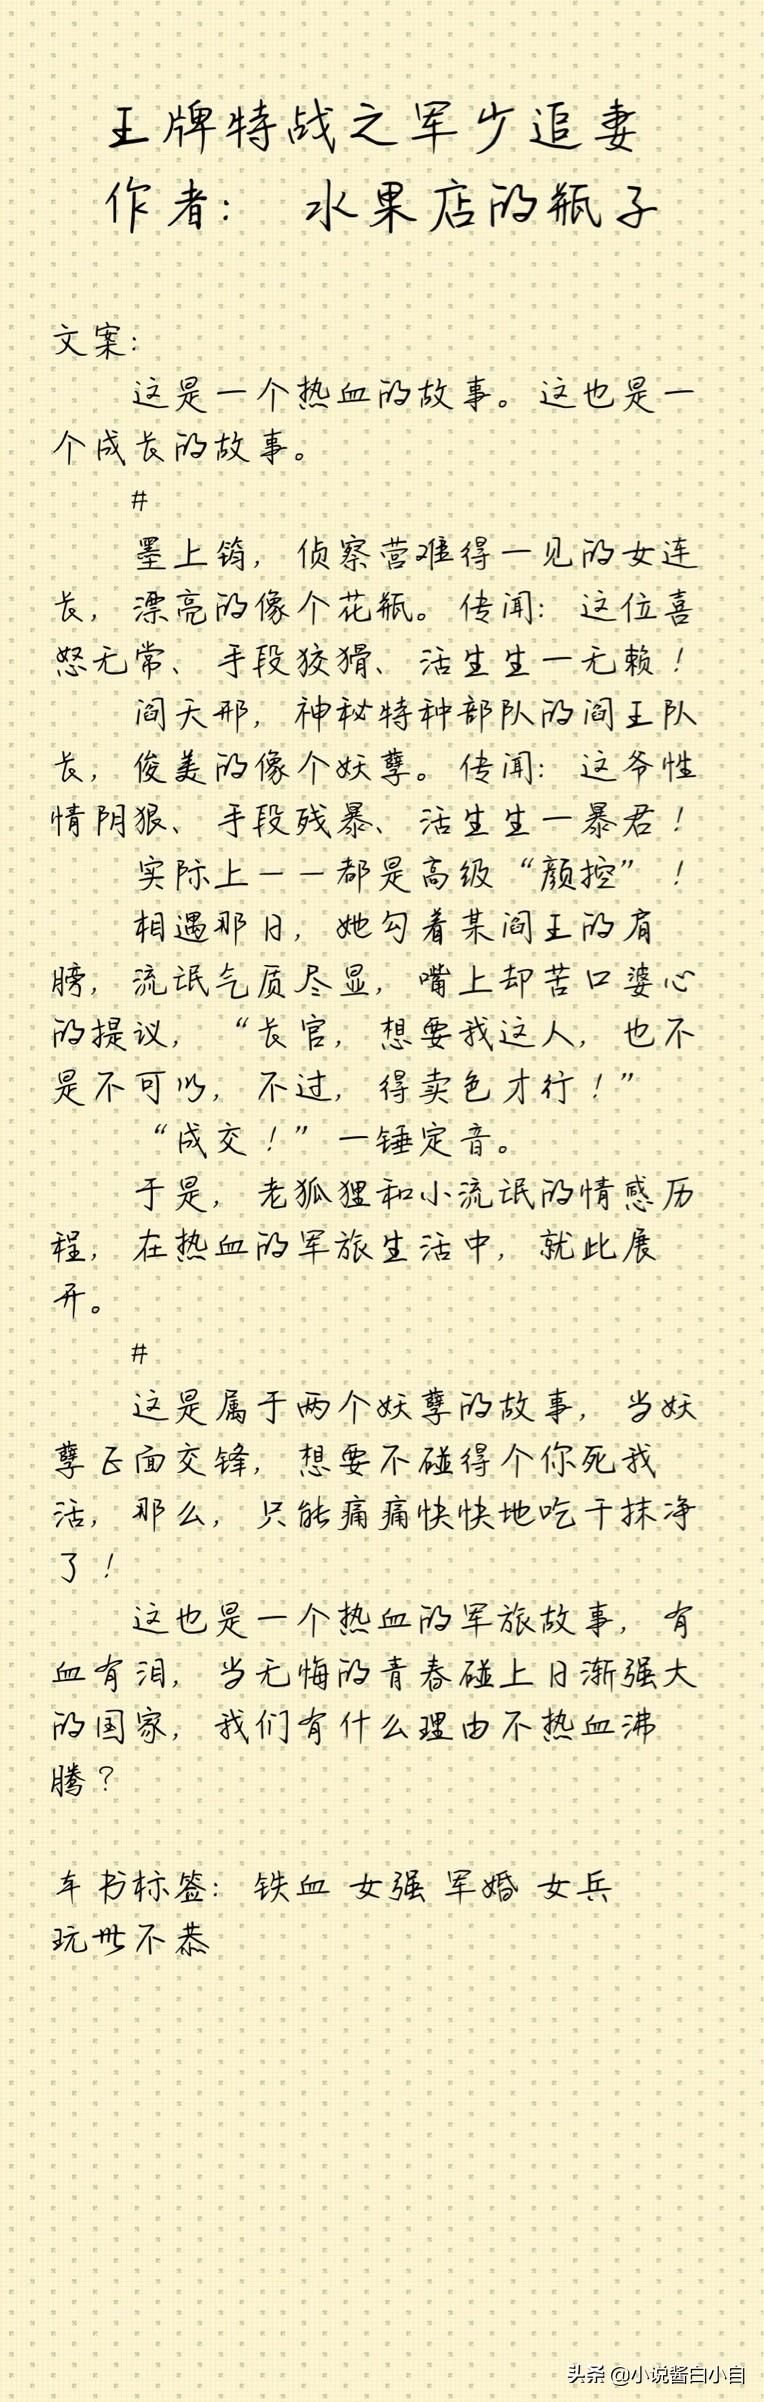 王牌特战之军少追妻
作者： 水果店的瓶子
文案：
这是一个热血的故事。这也是一
个成长的故事。
#
墨上筠，侦察营难得一见的女连
长，漂亮的像个花瓶。传闻：这位喜
怒无常、手段狡猾、活生生一无赖！
阎天邢，神秘特种部队的阎王队
长，俊美的像个妖孽。传闻：这爷性
情阴狠、手段残暴、活生生一暴君！
实际上——都是高级“颜控”！
相遇那日，她勾着某阎王的肩
膀，流氓气质尽显，嘴上却苦口婆心
的提议，“长官，想要我这人，也不
是不可以，不过，得卖色才行！”
“成交！”一锤定音。
于是，老狐狸和小流氓的情感历
程，在热血的军旅生活中，就此展
开。
#
这是属于两个妖孽的故事，当妖
孽正面交锋，想要不碰得个你死我
活，那么，只能痛痛快快地吃干抹净
了！
这也是一个热血的军旅故事，有
血有泪，当无悔的青春碰上日渐强大
的国家，我们有什么理由不热血沸
腾？
本书标签：铁血 女强 军婚 女兵
玩世不恭
头条 @小说酱白小白